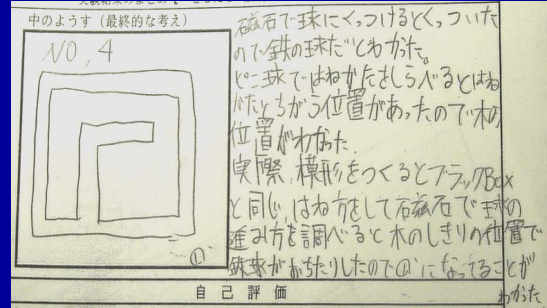 中のようす（最終的な考え）
NO,4
磁石で球にくっつけるとくっついた
ので鉄の球だとわかった。
ピン球ではねかたをしらべるとはね
かたとちがう位置があったので木の
位置がわかった.
実際、模形をつくるとブラックBox
と同じ、はね方をして磁石で球の
進み方を調べると木のしきりの位置で
鉄球がおちたりしたので①になってることが
わかった
自己評価